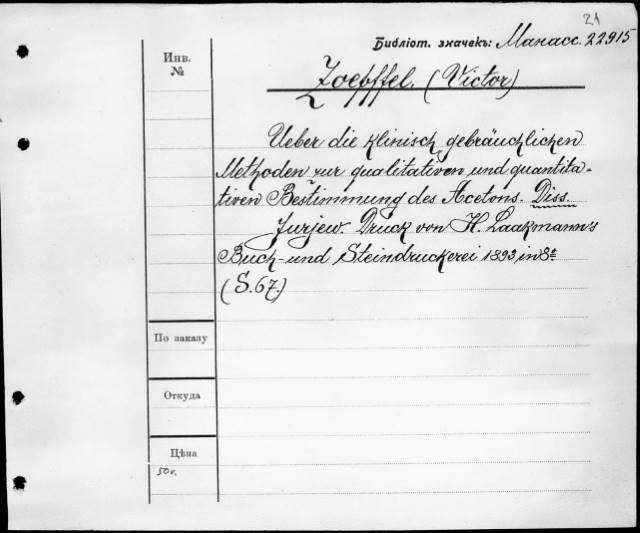 21
Библіот. значекъ: Манасс. 22915
Инв.
№
Zoepffel. (Victor)
Ueber die klinisch gebräuchlichen
Methoden zur qualitativen und quantita-
tiven Bestimmung des Acetons. Diss.
Jurjew. Druck von H. Laakmann's
Buch- und Steindruckerei 1893 in 8º
(S. 67.)
По заказу
Откуда
Цѣна
50к.